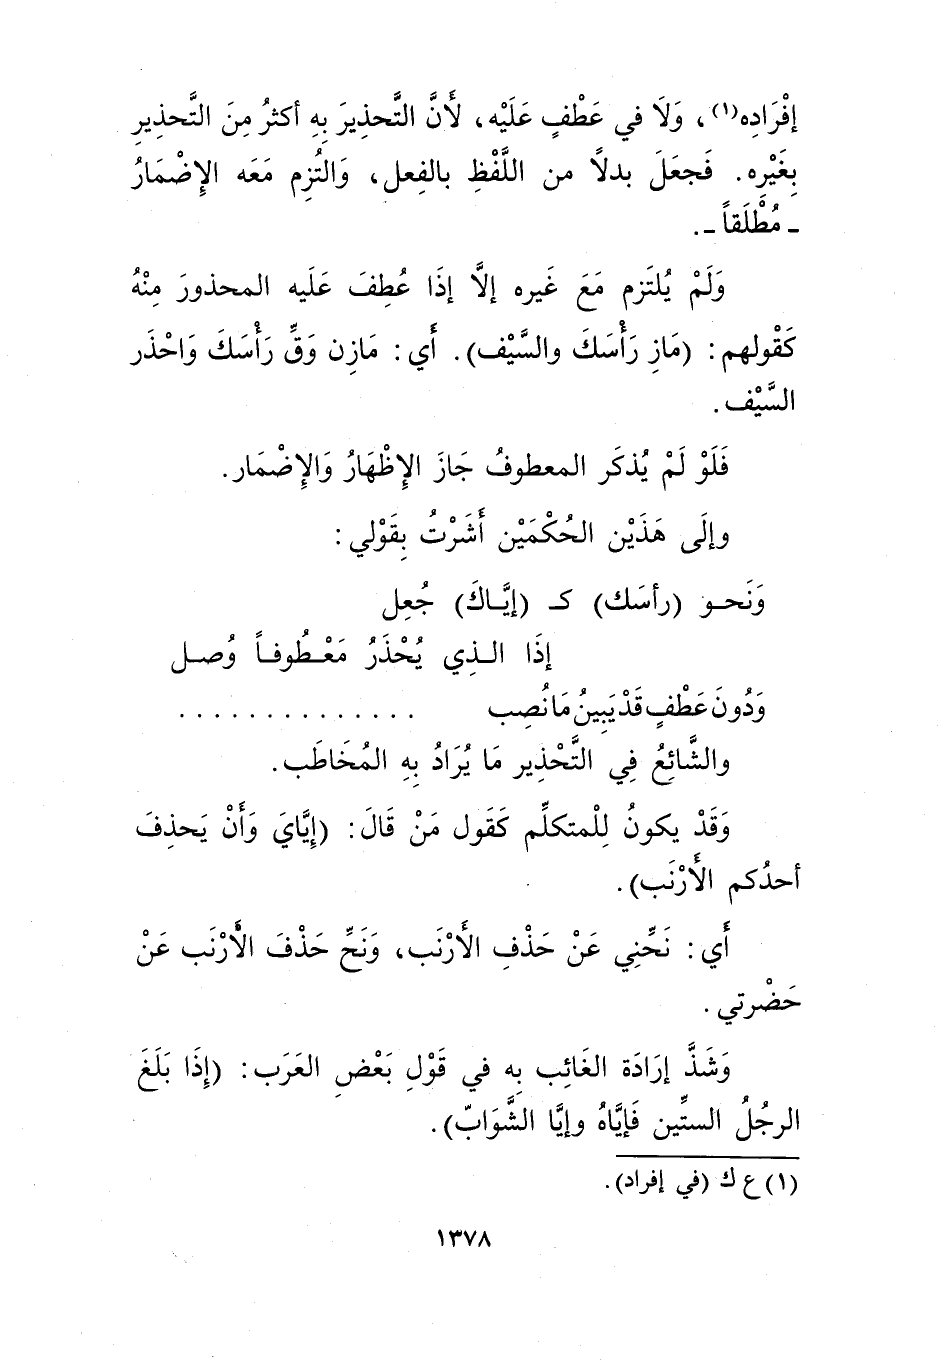 إفْرَادِه(١)، وَلَا في عَطْفٍ عَلَيْه، لأَنَّ التَّحذِيرَ بِهِ أكثرُ مِنَ التَّحذِيرِ
بِغَيْرِه. فَجعَلَ بدلاً من اللَّفْظِ بالفِعل، وَالتُزِم مَعَه الإِضْمَارُ
ـ مُطْلَقاً ـ.
وَلَمْ يُلتَزم مَعَ غَيره إلَّا إذَا عُطِفَ عَلَيه المحذورَ مِنْهُ
كَقْولهم: (مَازِ رَأْسَكَ والسَّيْف). أَي: مَازِن وَقِّ رَأْسَكَ وَاحْذَر
السَّيْف.
فَلَوْ لَمْ يُذكَر المعطوفُ جَازَ الإِظْهَارُ وَالإِضْمَار.
وإلَى هَذَيْن الحُكْمَيْن أَشَرْتُ بِقَوْلي:
وَنَحـو (رأسَك) كـ (إيَّـاكَ) جُعِل
إذَا الـذِي يُحْذَرُ مَعْـطُوفـاً وُصـل
وَدُونَ عَطْفٍ قَدْ يَبِينُ مَا نُصِب ..............
والشَّائِعُ فِي التَّحْذِير مَا يُرَادُ بِهِ المُخَاطَب.
وَقَدْ يكونُ لِلْمتكلِّم كَقَول مَنْ قَالَ: (إيَّايَ وَأَنْ يَحذِفَ
أحدُكم الأَرْنَب).
أَي: نَحِّنِي عَنْ حَذْفِ الأَرْنَب، وَنَحِّ حَذْفَ الأَرْنَب عَنْ
حَضْرتي.
وَشَذَّ إرَادَة الغَائِب بِه في قَوْلِ بَعْضِ العَرَب: (إِذَا بَلَغَ
الرجُلُ الستِّين فَإيَّاهُ وإيَّا الشَّوَابّ).
(١) ع ك (في إفراد).
١٣٧٨